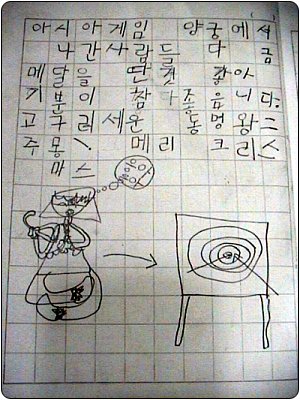 아시아게임 양궁에서
나간사람들 다 금
메달을 딴것 같아
기분이 참 좋습니다.
고구려세운 동명왕=
주몽\ 메리 크리스
마스